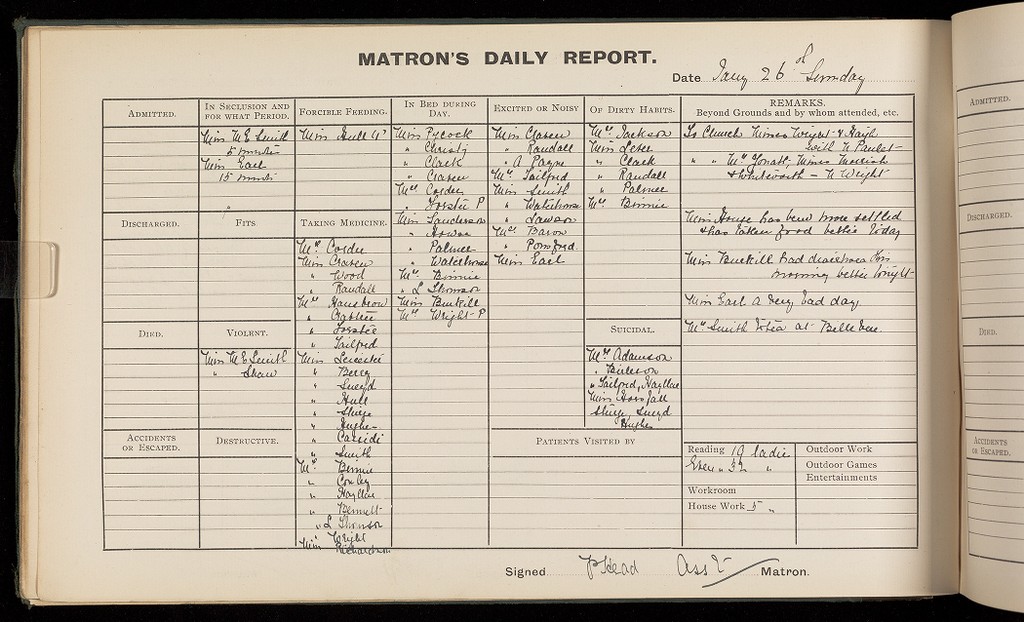 MATRON'S DAILY REPORT.
Date Jany 26 Sunday
ADMITTED.
IN SECLUSION AND
FOR WHAT PERIOD.
Miss M E Smith
5 minutes
Miss Earl
15 minutes
FORCIBLE FEEDING.
Miss Hull
IN BED DURING
DAY.
Miss Pycock
" Christy
" Clark
" Craven
Mrs Corder
" P
Miss Sanderson
" Palmer
" Waterhouse
Mrs Binnie
" L Thomson
Miss Burkill
Mrs Wright P
EXCITED OR NOISY
Miss Craven
" Randall
" A Payne
Mrs Tailford
Miss Smith
" Waterhouse
" Lawson
Mrs Baron
" Pomfred
Miss Earl
OF DIRTY HABITS.
Mrs Jackson
Miss
" Clark
" Randall
" Palmer
Mrs Binnie
REMARKS.
Beyond Grounds and by whom attended, etc.
To Church Misses Wright & Haigh
with N Paulet
" " Mrs Misses
& Whitworth - N Wright
Miss House has been more settled
& has taken food better today
Miss Burkill had diarrhoea this
morning better tonight
Miss Earl a very bad day.
Mrs Smith to tea at Belle Vue.
DISCHARGED.
FITS
"
TAKING MEDICINE.
Mrs Corder
Miss Craven
" Wood
" Randall
Mrs
" Crabtree
"
" Tailford
Miss Leicester
" Berry
" Sneyd
" Hull
" Sturge
" Hughes
" Cassidi
" Smith
Mrs Binnie
" Conley
" Hayllar
" Bennett
" L Thomson
" Wright
Miss Richardson
DIED.
VIOLENT.
Miss M E Smith
" Shaw
SUICIDAL.
Mrs Adamson
"
" Tailford, Hayllar
Miss Horsfall
Sturge, Sneyd
Hughes
ACCIDENTS
OR ESCAPED.
DESTRUCTIVE.
PATIENTS VISITED BY
Reading 19 ladies
Exer " 32 "
Workroom
House Work 5 "
Outdoor Work
Outdoor Games
Entertainments
Signed P Head Asst Matron.
ADMITTED.
DISCHARGED.
DIED.
ACCIDENTS
OR ESCAPED.